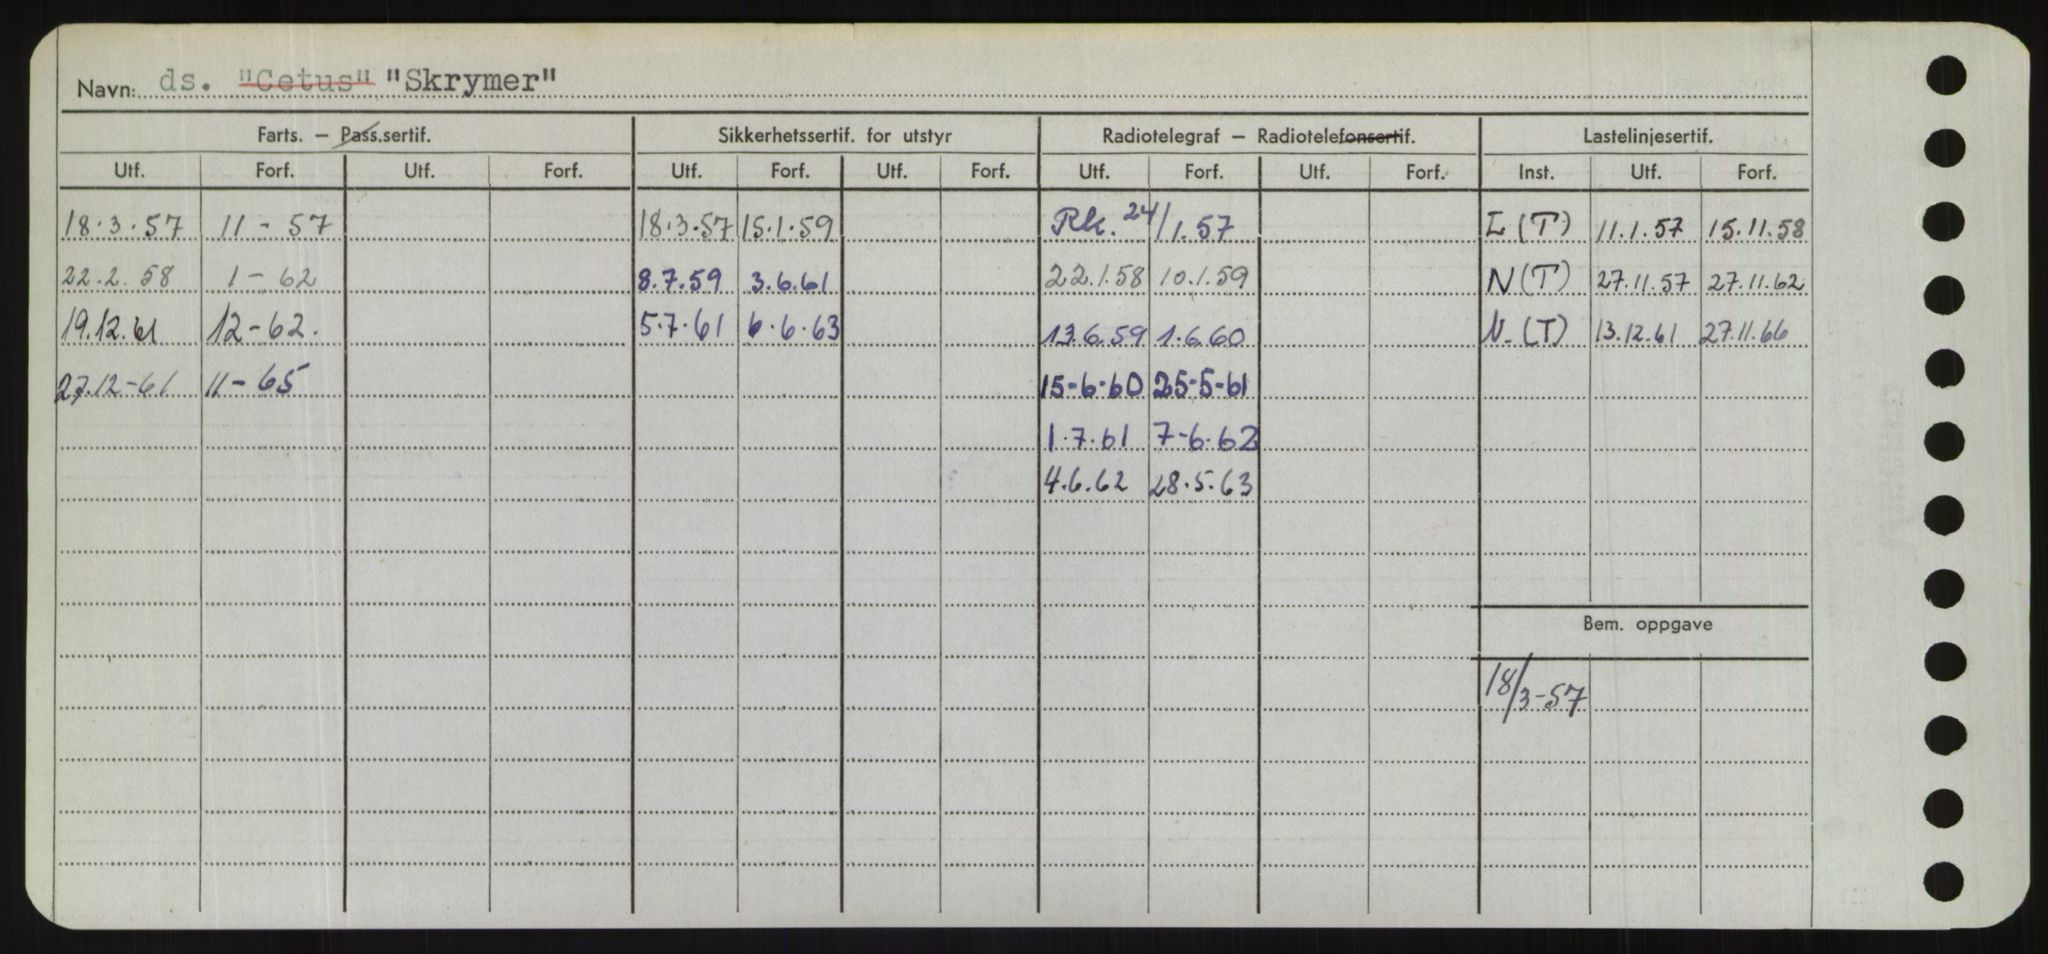 Navn: ds. "Cetus" "Skrymer"
Farts. — Pass.sertif. Sikkerhetssertif. for utstyr Radiotelegraf — Radiotelefonsertif. Lastelinjesertif.
Utf. Forf. Utf. Forf. Utf. Forf. Utf. Forf. Utf. Forf. Utf. Forf. Inst. Utf. Forf.
18.3.57 11-57 18.3.57 15.1.59 Rk. 24/1.57 L(T) 11.1.57 15.11.58
22.2.58 1-62 8.7.59 3.6.61 22.1.58 10.1.59 N(T) 27.11.57 27.11.62
19.12.61 12-62. 5.7.61 6.6.63 13.6.59 1.6.60 N.(T) 13.12.61 27.11.66
27.12-61 11-65 15-6-60 25-5-61
1.7.61 7-6.62
4.6.62 28.5.63
Bem. oppgave
18/3-57